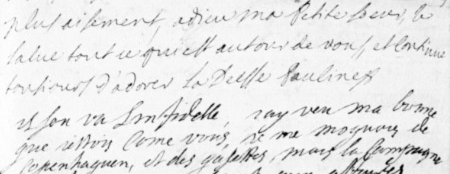 plus aisement, adieu ma Petite soeur, je
salue tout ce quiest autour de vous, et Continue
tousiours d'adorer la Deesse Pauline
va Linfidelle, iay veu ma bonne
que come vous, ie me moquois de
Copenhaguen, et des gazettes, mais la Campagne